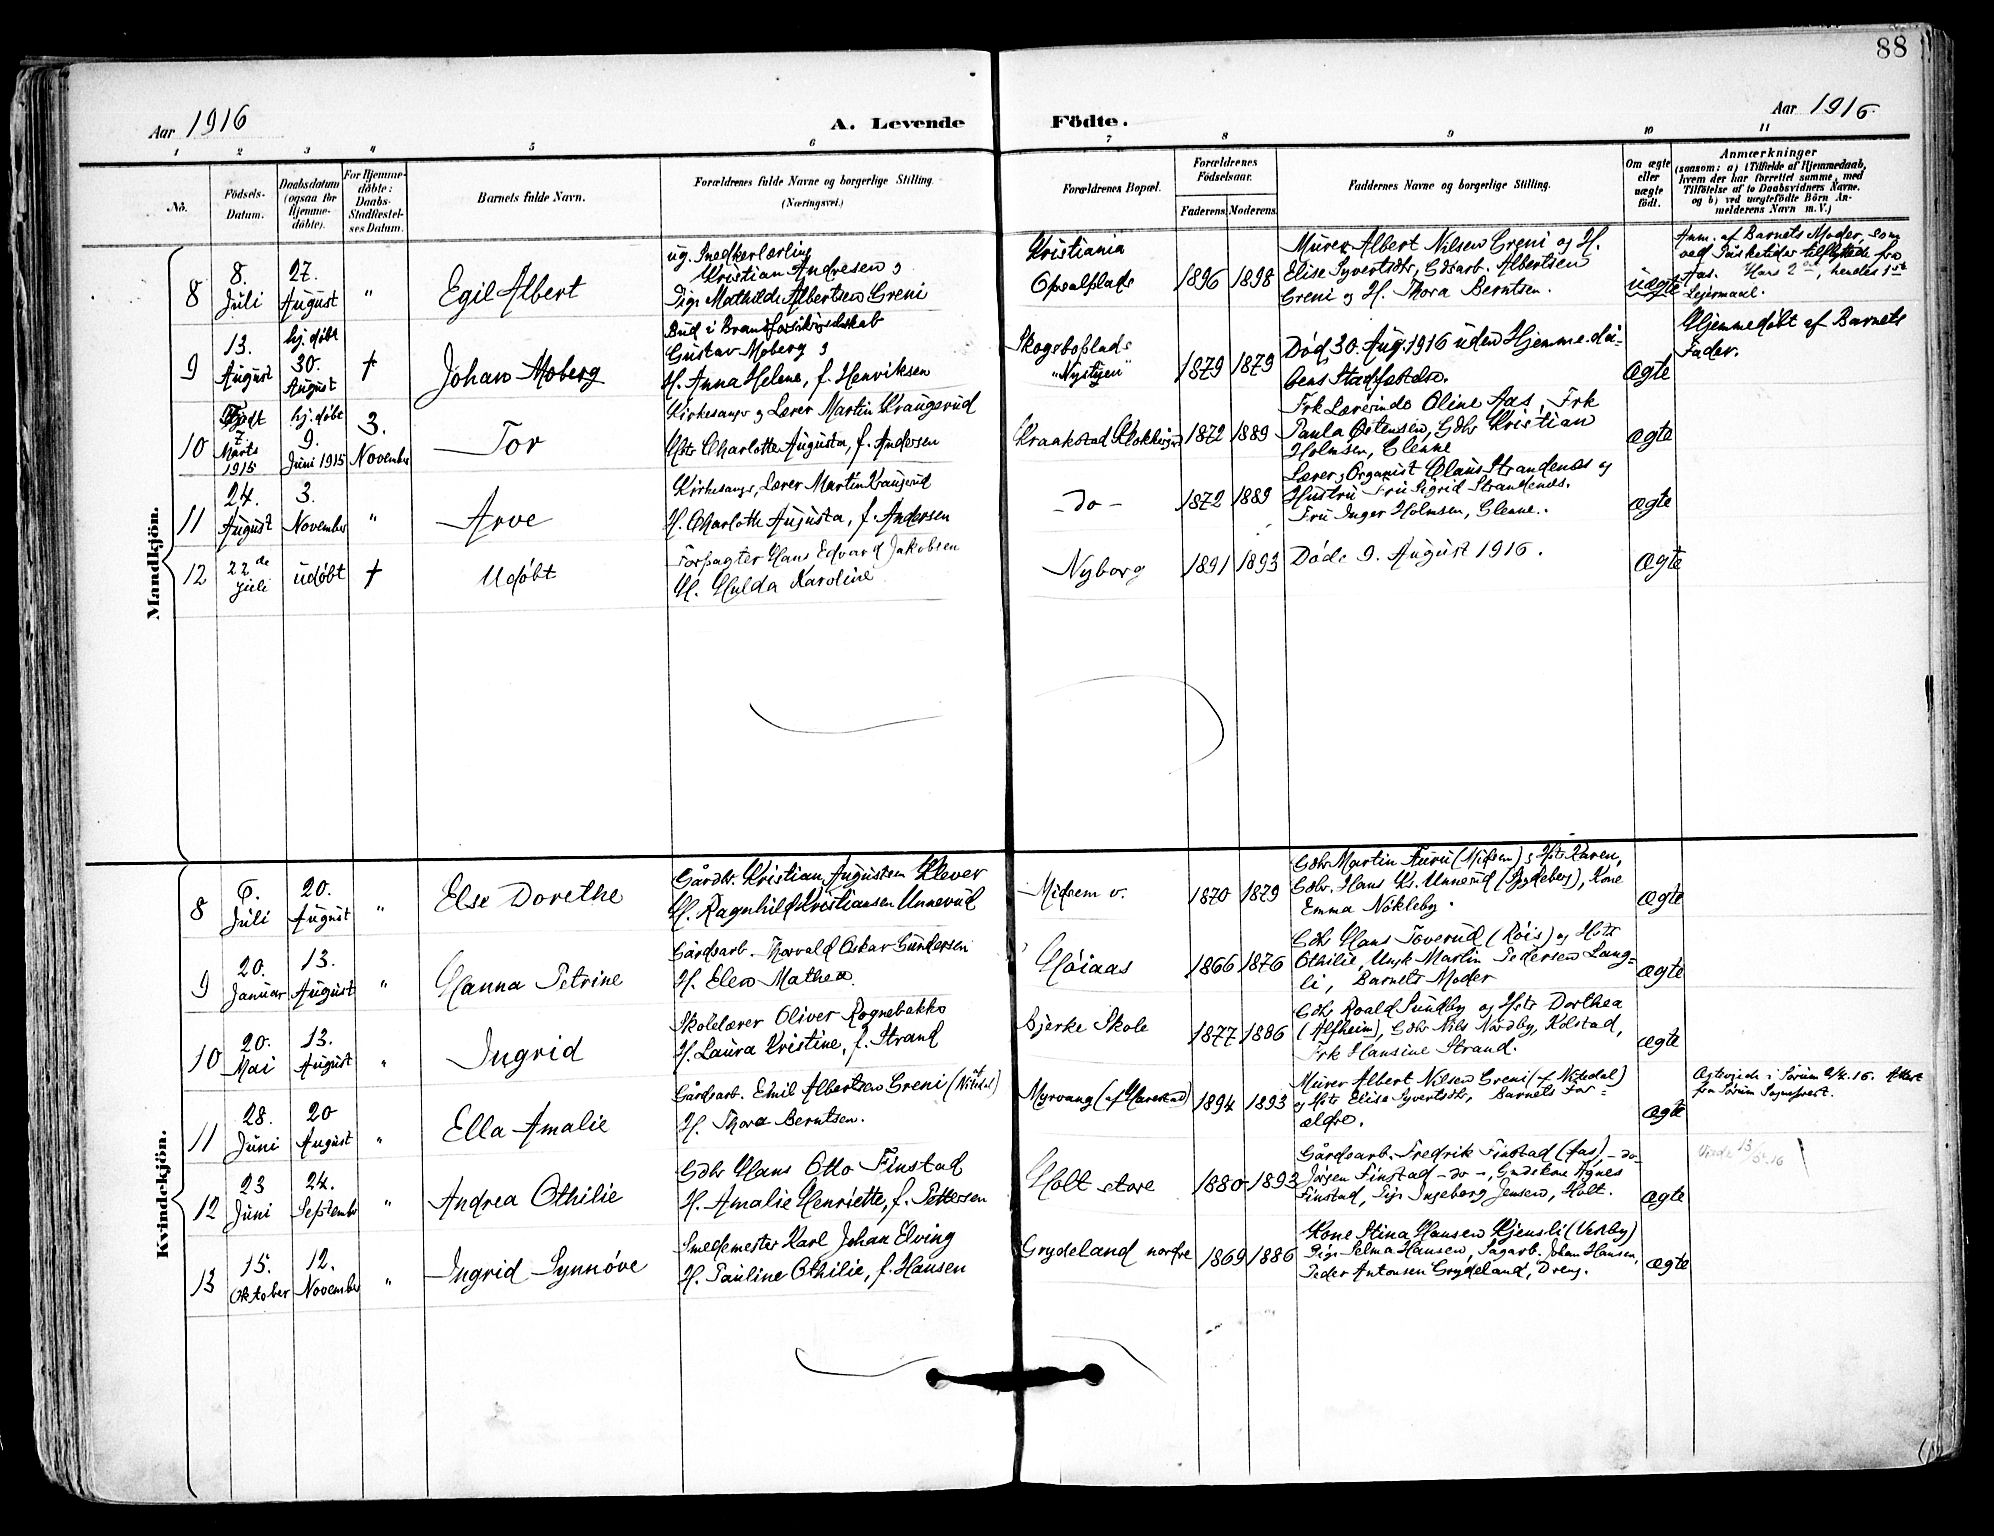 88
Aar 1916
A. Levende Födte.
Aar 1916.
1 2 3 4 5 6 7 8 9 10 11
No.
Födsels-Datum.
Daabsdatum (ogsaa for Hjemmedöbte).
For Hjemmedöbte: Daabs-Stadfæstelses Datum.
Barnets fulde Navn.
Forældrenes fulde Navne og borgerlige Stilling
(Næringsvei.)
Forældrenes Bopæl.
Forældrenes Födselsaar.
Faderens. Moderens.
Faddernes Navne og borgerlige Stilling.
Om ægte eller uægte födt.
Anmærkninger
(saasom: a) i Tilfælde af Hjemmedaab,
hvem der har forrettet samme, med
Tilföielse af to Daabsvidners Navne,
og b) ved uægtefödte Börn An-
melderens Navn m.V.)
Mandkjön.
8
8. Juli
27. August
"
Egil Albert
ug. Snedkerlærling
Kristian Andresen &
Pige Mathilde Albertsen Greni
Kristiania
Opsalplads
1896 1898
Murer Albert Nilsen Greni og H.
Elise Syvertsdtr, Gdsarb. Albertsen
Greni og H. Thora Berntsen.
uægte
Anm. af Barnets Moder, som
ved Paasketider tilflyttede fra
Aas. Hans 2den, hendes 1ste
Lejermaal.
9
13. August
hj. døbt 30. August
†
Johan Moberg
Bud i Brandforsikringsselskab
Gustav Moberg &
H. Anna Helene, f. Henriksen
Skogsboplads
"Nystuen"
1879 1879
Død 30. Aug. 1916 uden Hjemmedaa-
bens Stadfæstelse.
ægte
Hjemmedøbt af Barnets
Fader.
10
Født 7. Marts 1915
hj. døbt 9. Juni 1915
3. November
Tor
Kirkesanger og Lærer Martin Kraugerud
Hstr Charlotte Augusta, f. Andersen
Kraakstad Klokkergaard
1872 1889
Frk Lærerinde Oline Aas, Frk
Paula Østensen, Gdbr Kristian
Holmsen, Glenne
ægte
11
24. August
3. November
"
Arve
Kirkesanger, Lærer Martin Kraugerud
H. Charlotte Augusta, f. Andersen
- do -
1872 1889
Lærer & Organist Claus Strandenæs og
Hustru Fru Sigrid Strandenæs.
Fru Inger Holmsen, Glenne.
ægte
12
22de Juli
udøbt
†
Udøbt
Forpagter Hans Edvard Jakobsen
H. Hulda Karoline
Nyborg
1891 1893
Døde 9. August 1916.
ægte
Kvindekjön.
8
6. Juli
20. August
"
Else Dorethe
Gårdbr. Kristian Augustsen Klever
H. Ragnhild Kristiansen Unnerud
Midsem v.
1870 1879
Gdbr Martin Furu (Midsem) & Hstr Karen,
Gdbr. Hans Kr. Unnerud (Spydeberg), Kone
Emma Nökleby.
ægte
9
20. Januar
13. August
"
Hanna Petrine
Gårdsarb. Thorvald Oskar Gundersen
H. Elen Mathea.
Høiaas
1866 1876
Gdbr Hans Toverud (Röis) og Hstr
Othilie, Ungk Martin Pedersen Lang-
li, Barnets Moder
ægte
10
20. Mai
13. August
"
Ingrid
Skolelærer Oliver Rognebakke
H. Laura Kristine, f. Strand
Bjerke Skole
1877 1886
Gdbr Roald Sundby og Hstr Dorthea
(Alfheim), Gdbr Nils Nordby, Kolstad,
Frk Hansine Strand.
ægte
11
28. Juni
20 August
"
Ella Amalie
Gårdsarb. Emil Albertsen Greni (af Nitedal)
H. Thora Berntsen.
Myrvang
1894 1893
Murer Albert Nilsen Greni (af Nitedal)
og Hstr Elise Syvertsdtr, Barnets For-
ældre.
ægte
i Sørum 16. Attest
fra Sørum Sogneprest.
12
23 Juni
24. September
"
Andrea Othilie
Gdbr Hans Otto Finstad
H. Amalie Henriette, f. Pettersen
Holt store
1880 1893
Gårdsarb. Fredrik Finstad (Aas), - do -
Jörgen Finstad - do -, Gmdskone Agnes
Finstad, Pige Ingeborg Jensen, Holt.
ægte
13
15. Oktober
12. November
"
Ingrid Synnöve
Smedemester Karl Johan Elving
H. Pauline Othilie, f. Hansen
Grydeland nordre
1869 1886
Kone Stina Hansen Kjensli (Vestby)
Pige Selma Hansen, Sagarb. Johan Hansen,
Peder Antonsen Grydeland, Dreng.
ægte